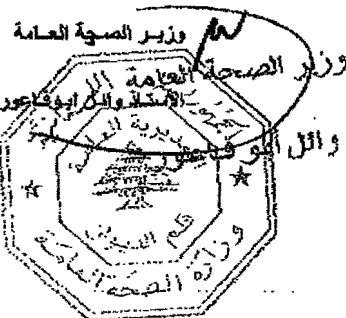 وزير الصحة العامة
وزير الصحة العامة
الأستاذ وائل ابوفاعور
وائل أبو فاعور
المديرية العامة
قلم الديوان
وزارة الصحة العامة